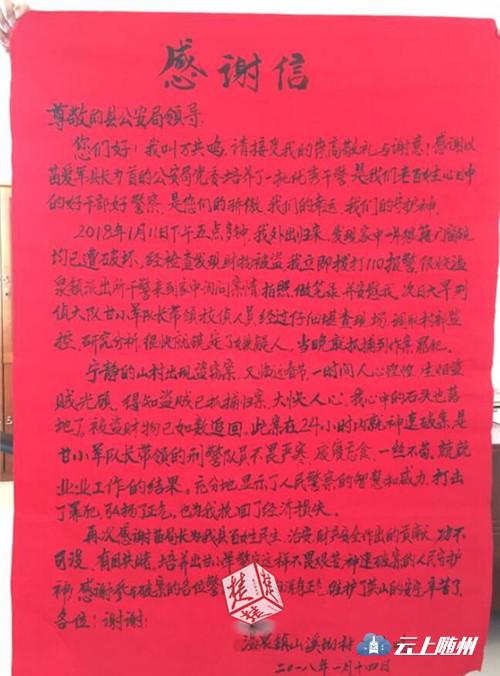 感谢信
尊敬的县公安局领导:
您们好!我叫万共鸣,请接受我的崇高敬礼与谢意!感谢以
苗爱军县长为首的公安局党委培养了一批优秀干警是我们老百姓心目中
的好干部好警察,是您们的骄傲,我们的幸运,我们的守护神.
2018年1月11日下午五点多钟,我外出归来,发现家中一片狼藉门窗锁
均已遭破坏,经检查发现财物被盗我立即拨打110报警,很快温
泉镇派出所干警来到家中询问案情,拍照做笔录并安慰我,次日大早刑
侦大队甘小军队长带领技侦人员经过仔细堪查现场,调取村部监
控,研究分析,很快就锁定了嫌疑人,当晚就抓捕到作案罪犯.
宁静的山村出现盗窃案,又临近春节,一时间人心惶惶,生怕盗
贼光顾,得知盗贼已抓捕归案,大快人心,我心中的石头也落
地了,被盗财物已如数追回。此案在24小时内就神速破案是
甘小军队长带领的刑警队员不畏严寒,废寝忘食,一丝不苟,兢兢
业业工作的结果。充分地显示了人民警察的智慧和威力,打击
了罪犯,弘扬了正气,也为我挽回了经济损失。
再次感谢苗局长为我县百姓民生,治安,财产安全作出的贡献,功不
可没,有目共睹,培养出甘小军警官这样不畏艰苦神速破案的人民守护
神,感谢参与破案的各位警 正气,维护了英山的安宁,辛苦了
各位!谢谢!
温泉镇山溪坳村
二〇一八年一月十四日
楚
云上随州